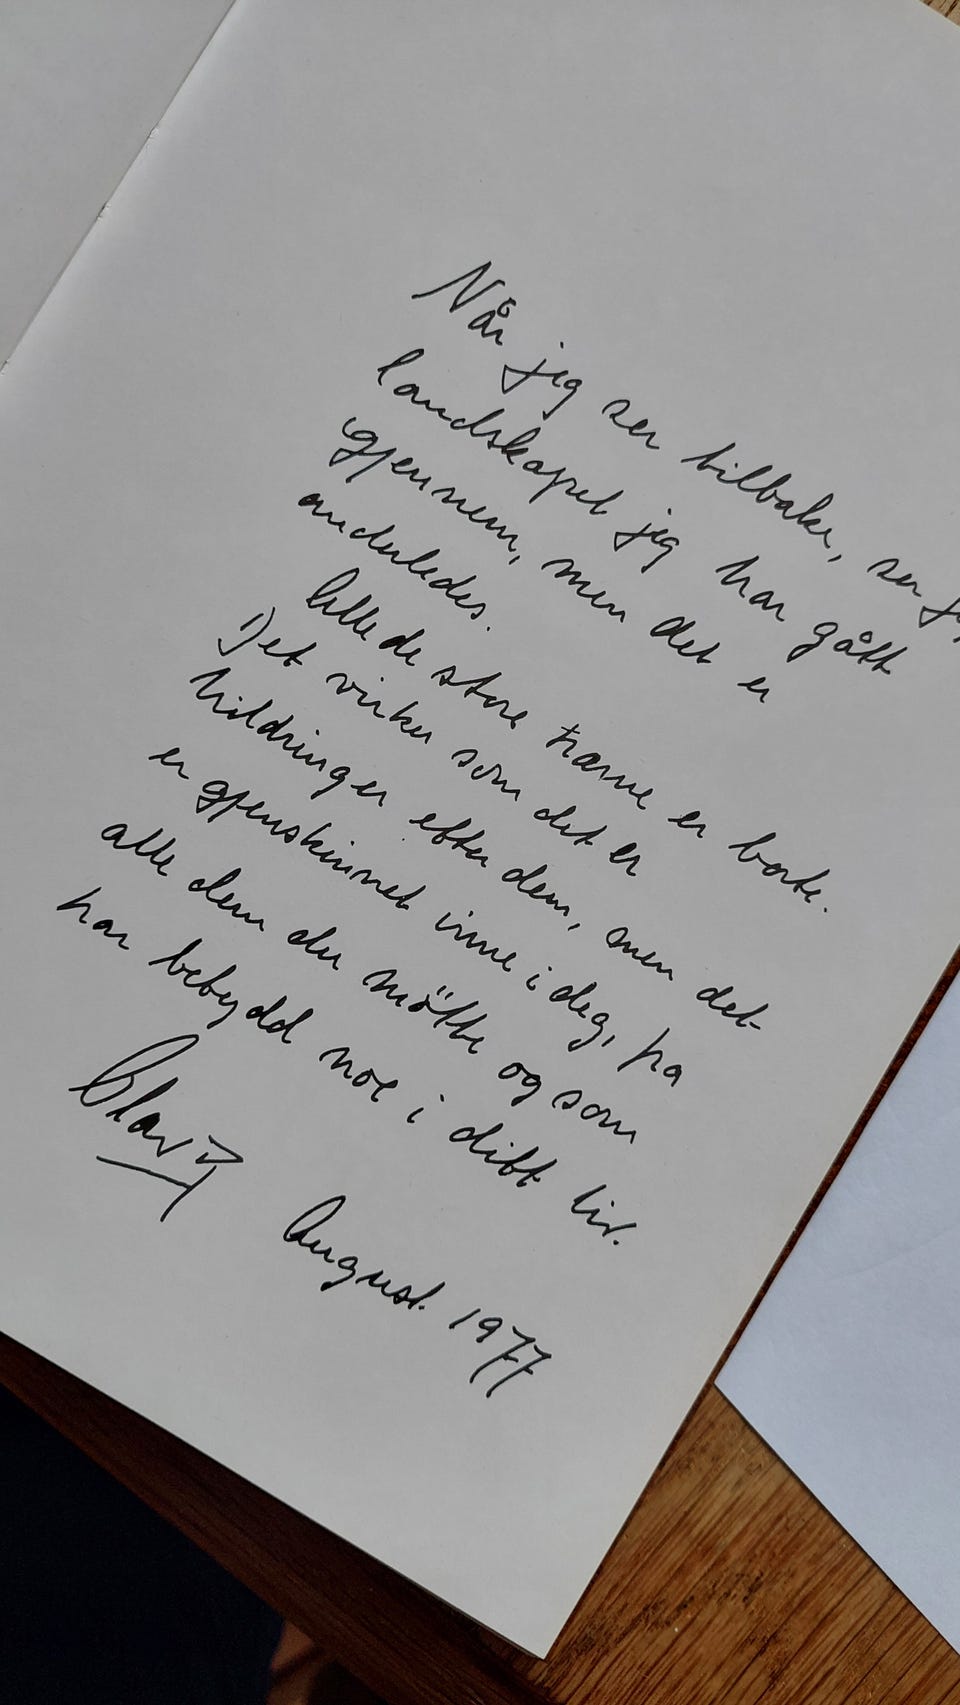 Når jeg ser tilbake, ser
landskapet jeg har gått
igjennem, men det er
anderledes.
Alle de store trærne er borte.
Det virker som det er
hildringer efter dem, men det
er gjenskinnet inne i deg, fra
alle dem du mötte og som
har betydd noe i ditt liv.
Olav
August 1977